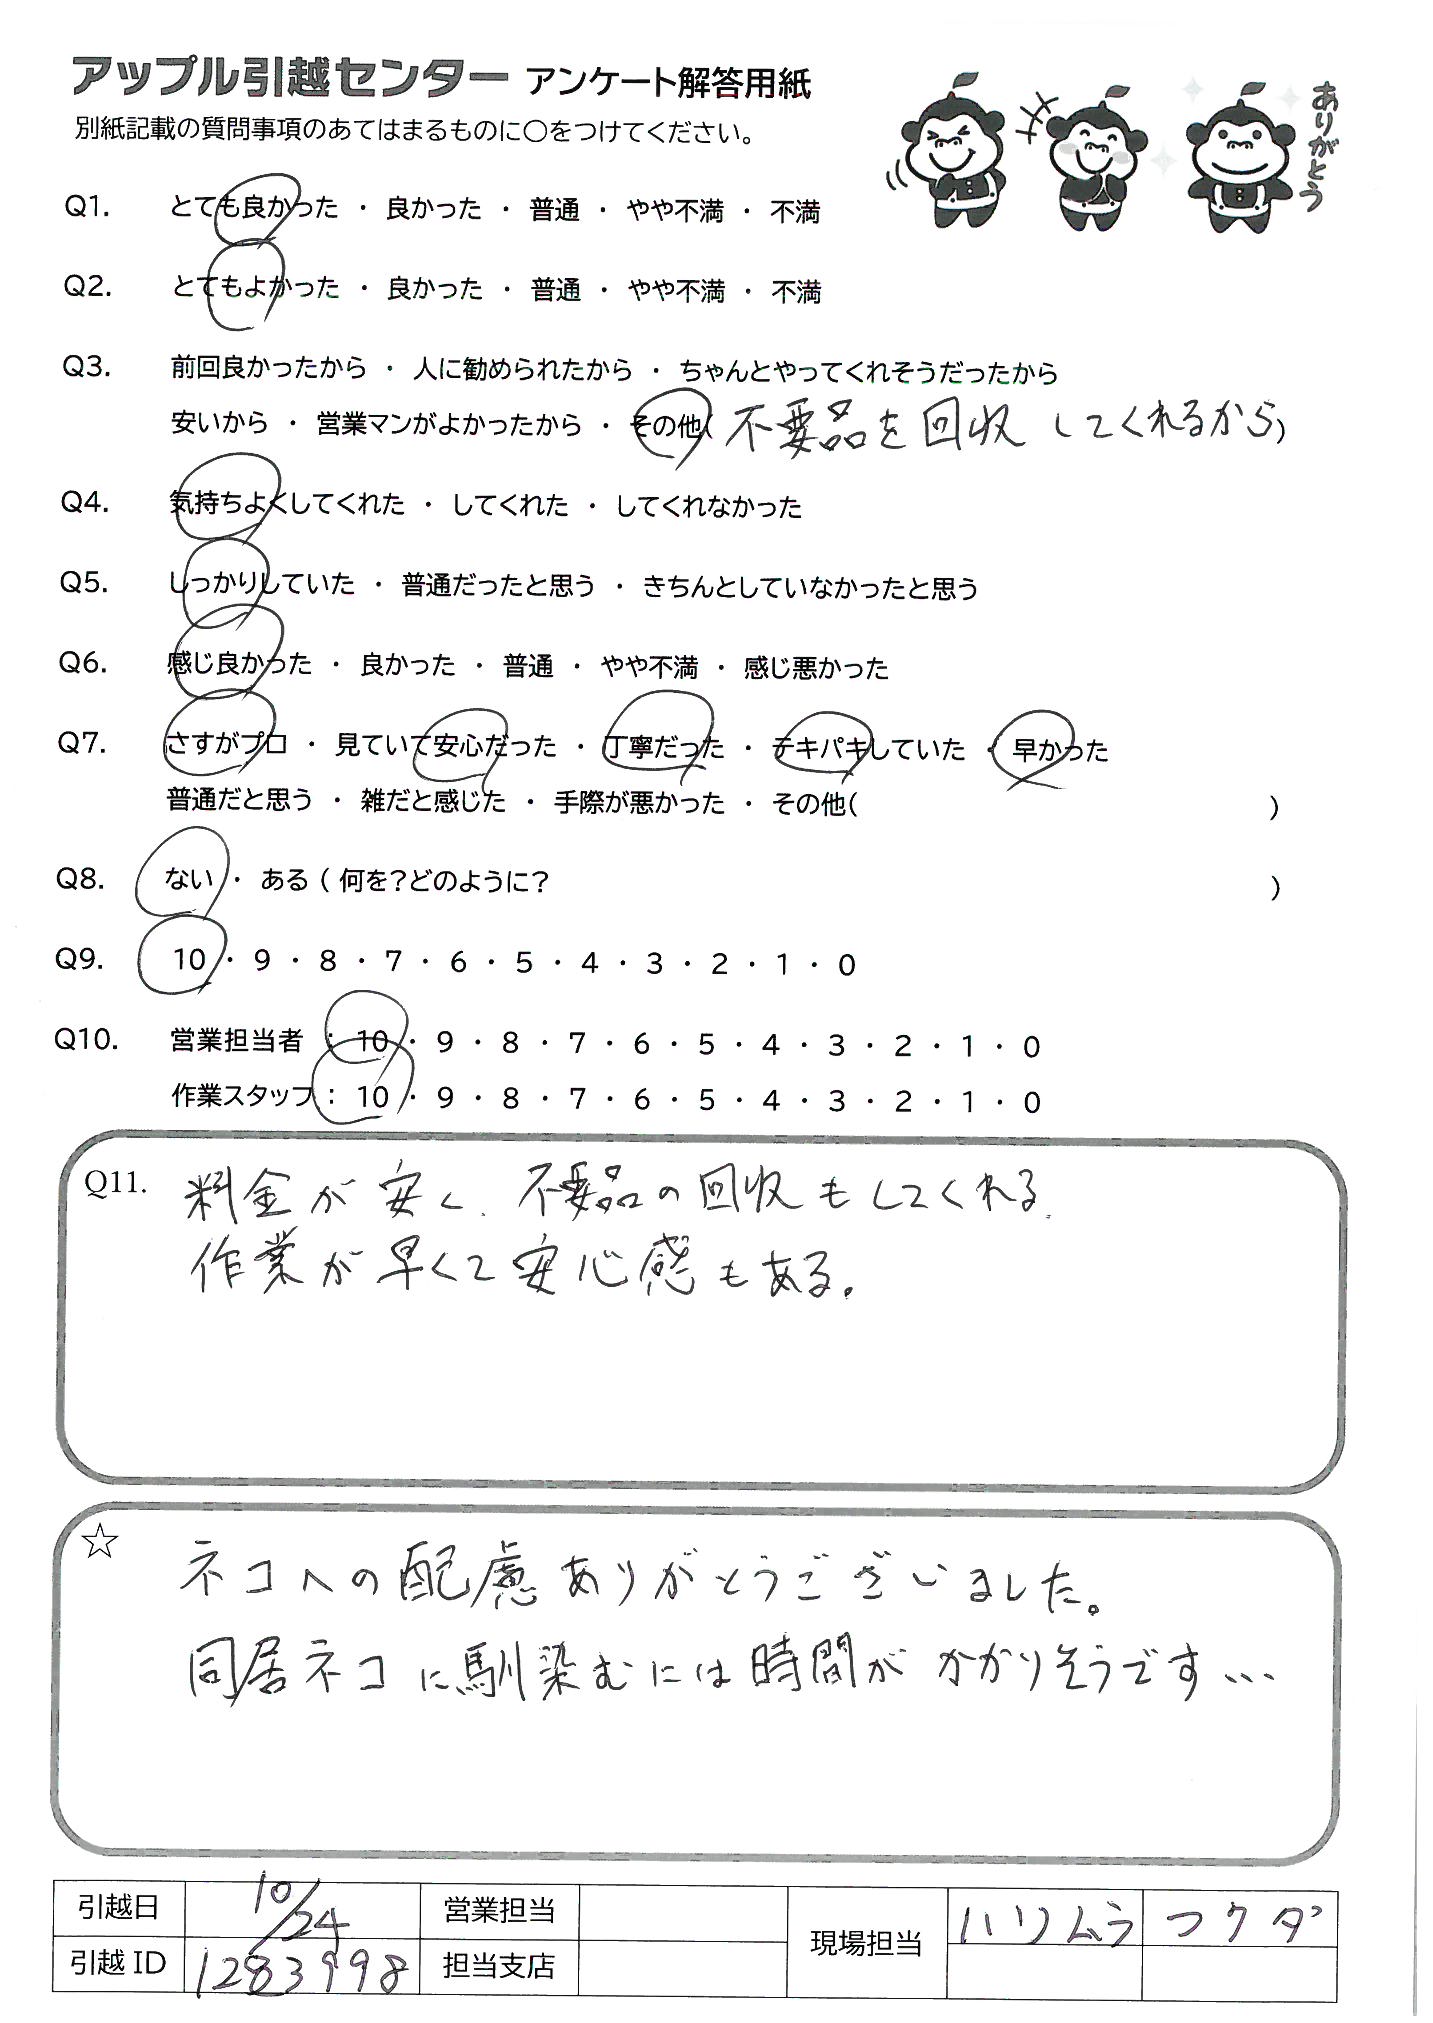 アップル引越センター アンケート解答用紙
別紙記載の質問事項のあてはまるものに○をつけてください。
ありがとう
Q1. とても良かった ・ 良かった ・ 普通 ・ やや不満 ・ 不満
Q2. とてもよかった ・ 良かった ・ 普通 ・ やや不満 ・ 不満
Q3. 前回良かったから ・ 人に勧められたから ・ ちゃんとやってくれそうだったから
安いから ・ 営業マンがよかったから ・ その他( 不要品を回収してくれるから)
Q4. 気持ちよくしてくれた ・ してくれた ・ してくれなかった
Q5. しっかりしていた ・ 普通だったと思う ・ きちんとしていなかったと思う
Q6. 感じ良かった ・ 良かった ・ 普通 ・ やや不満 ・ 感じ悪かった
Q7. さすがプロ ・ 見ていて安心だった ・ 丁寧だった ・ テキパキしていた ・ 早かった
普通だと思う ・ 雑だと感じた ・ 手際が悪かった ・ その他( )
Q8. ない ・ ある ( 何を?どのように? )
Q9. 10 ・ 9 ・ 8 ・ 7 ・ 6 ・ 5 ・ 4 ・ 3 ・ 2 ・ 1 ・ 0
Q10. 営業担当者 : 10 ・ 9 ・ 8 ・ 7 ・ 6 ・ 5 ・ 4 ・ 3 ・ 2 ・ 1 ・ 0
作業スタッフ : 10 ・ 9 ・ 8 ・ 7 ・ 6 ・ 5 ・ 4 ・ 3 ・ 2 ・ 1 ・ 0
Q11. 料金が安く、不要品の回収もしてくれる。
作業が早くて安心感もある。
☆ ネコへの配慮ありがとうございました。
同居ネコに馴染むには時間がかかりそうです…
引越日 10/24 営業担当 現場担当 ハリムラ フクダ
引越 ID 1283998 担当支店